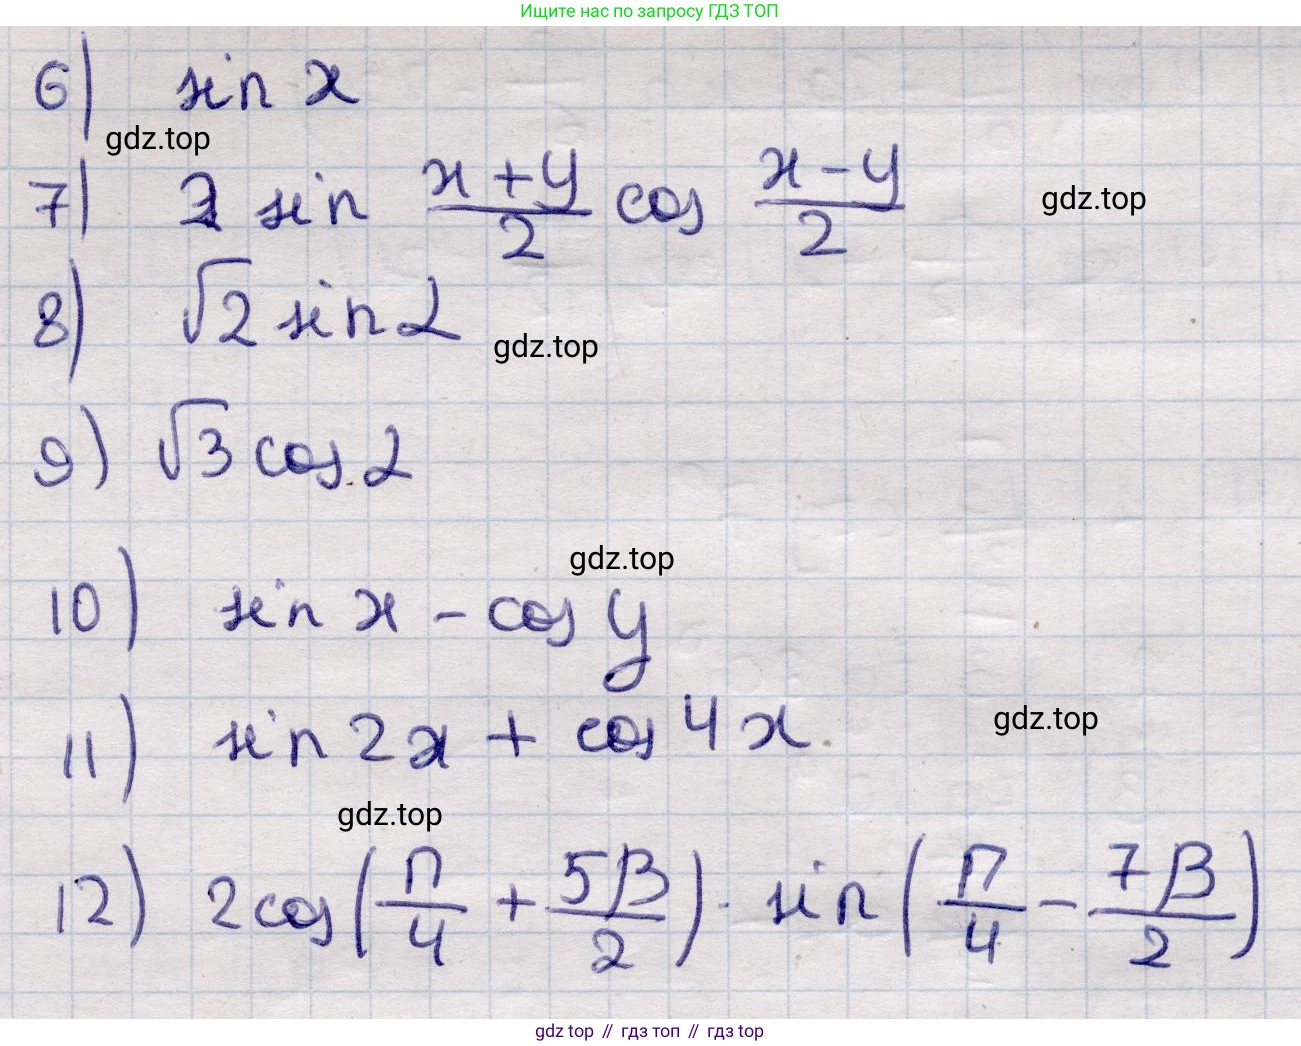 Ищите нас по запросу ГДЗ ТОП
6) sin x
gdz.top
7) 2 sin (x+y)/2 cos (x-y)/2
gdz.top
8) √2 sin 2
gdz.top
9) √3 cos 2
gdz.top
10) sin x - cos y
11) sin 2x + cos 4x
gdz.top
gdz.top
12) 2cos(π/4 + 5β/2) · sin(π/4 - 7β/2)
gdz top // гдз топ // гдз top